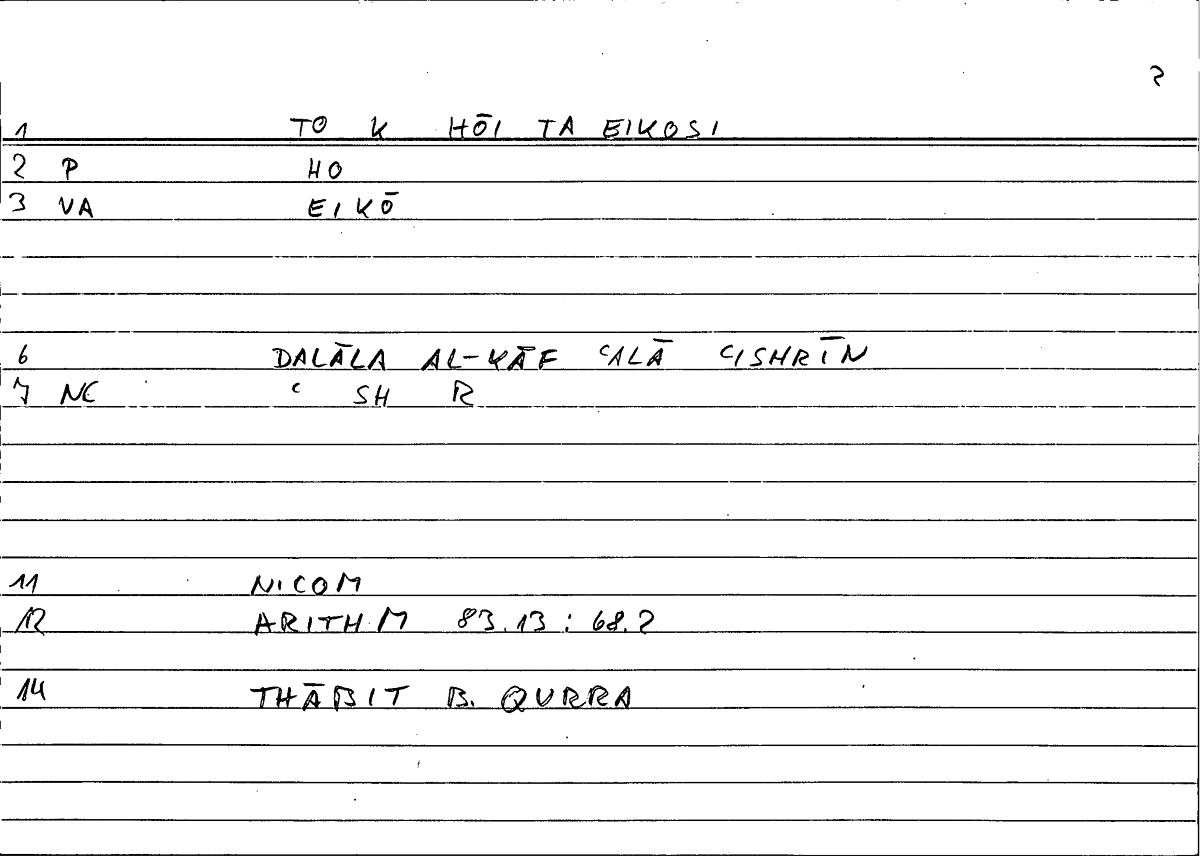 2
1 TO K HŌI TA EIKOSI
2 P HO
3 VA EIKŌ
6 DALĀLA AL-KĀF ʿALĀ ʿISHRĪN
7 NC ʿ SH R
11 NICOM
12 ARITHM 83.13 : 68.2
14 THĀBIT B. QURRA